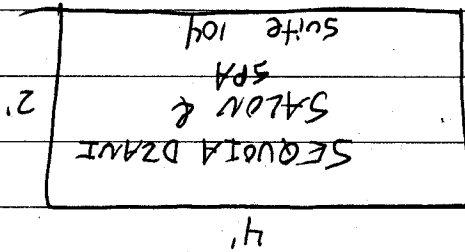 4'
SEQUOIA DZANI
SALON &
SPA
Suite 104
2'